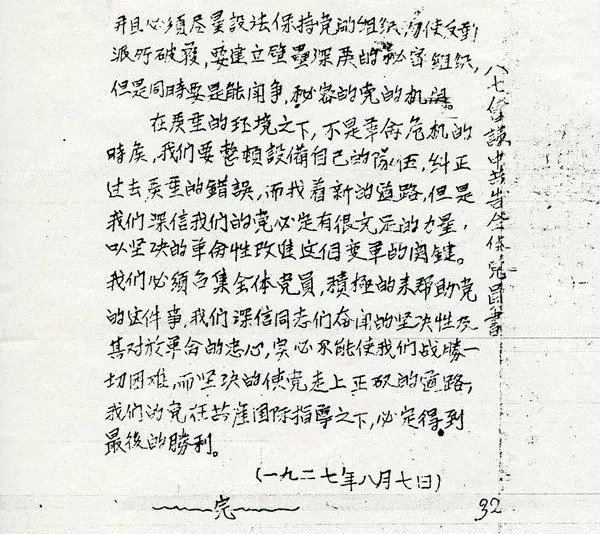 并且必须尽量設法保持党的組织,勿使反動
派所破获,要建立壁壘深严的秘密組织,
但是同時要是能鬥争,秘密的党的机关。
在严重的环境之下,不是革命危机的
時矦,我們要整頓設備自己的隊伍,糾正
过去严重的錯誤,而找着新的道路,但是
我們深信我們的党必定有很充足的力量,
以坚决的革命性改進这个变革的関鍵。
我們必須召集全体党員,積極的来帮助党
的这件事,我們深信同志們奋鬥的坚决性及
其对於革命的忠心,实必能使我們战勝一
切困难,而坚决的使党走上正确的道路,
我們的党在共産国际指導之下,必定得到
最後的勝利。
(一九二七年八月七日)
完
八七会議中共告全体党員書
32